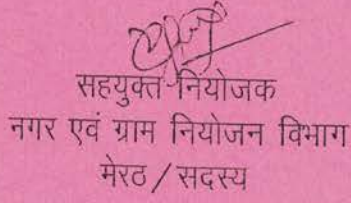 सहयुक्त नियोजक
नगर एवं ग्राम नियोजन विभाग
मेरठ / सदस्य